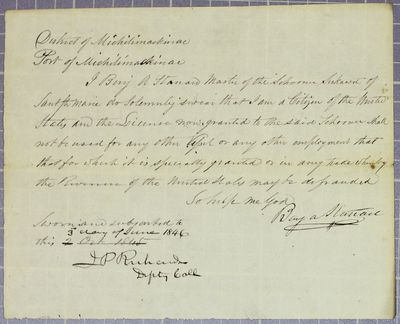 District of Michilimackinac
Port of Michilimackinac
I Benj A Stanard Master of the Schooner of
Saut Ste Marie do Solemnly swear that I am a Citizen of the United
States and the License now granted to the said Schooner Shall
not be used for any other or any other employment that
that for which it is specially granted or in any trade whereby
the Revenue of the United States may be defrauded
So help me God
Benj A Stanard
Sworn and subscribed to
this 2 Oct 1845
3 day of June 1846
J P Richards
Depty Coll